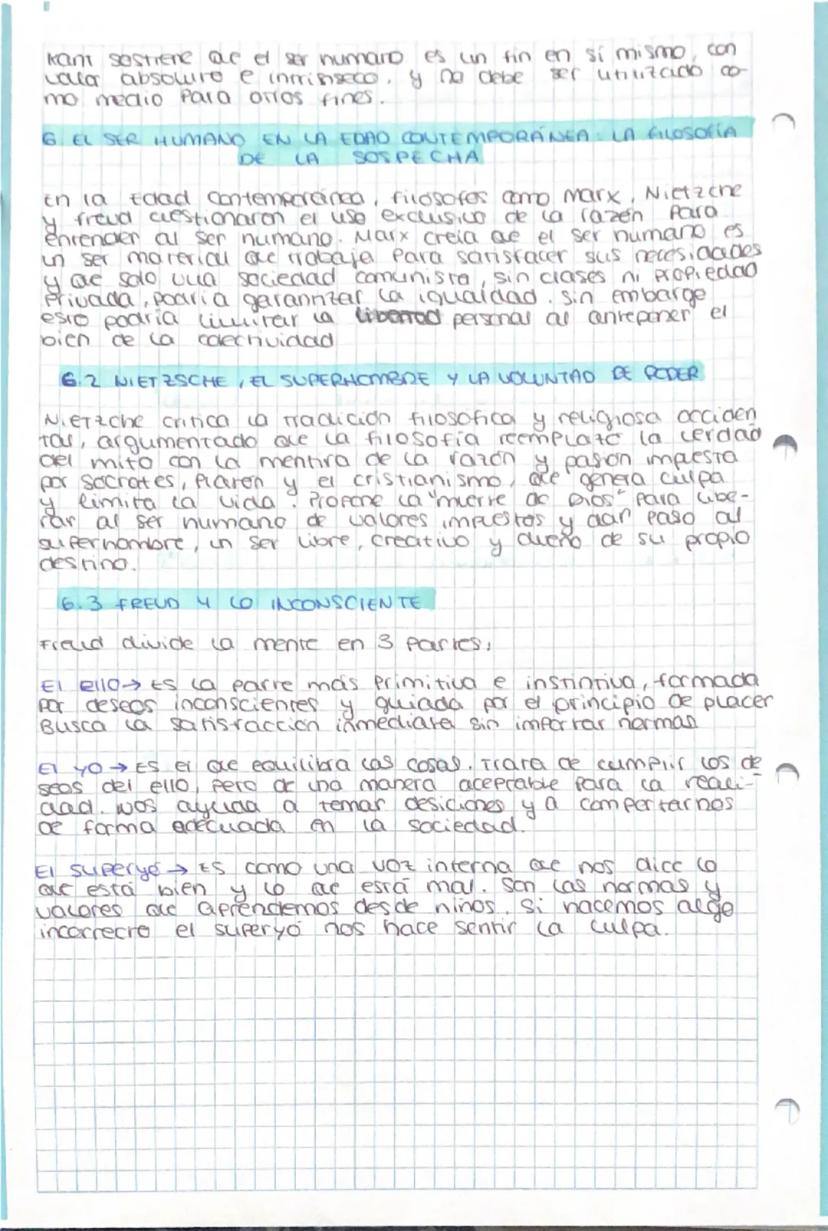 Kant sostiene que el ser humano es un fin en sí mismo, con
valor absoluto e intrínseco, y no debe ser utilizado co-
mo medio para otros fines.
6 EL SER HUMANO EN LA EDAD CONTEMPORÁNEA: LA FILOSOFÍA
DE LA SOSPECHA
En la Edad contemporánea, filosofos como Marx, Nietzche
y freud cuestionaron el uso exclusivo de la razón para
entender al ser humano. Marx creía que el ser humano es
un ser material que trabaja para satisfacer sus necesidades
y que solo una sociedad comunista, sin clases ni propiedad
privada, podría garantizar la igualdad. sin embargo
esto podría limitar la libertad personal al anteponer el
bien de la colectividad
6.2 NIETZSCHE, EL SUPERHOMBRE Y LA VOLUNTAD DE PODER
Nietzche critica la tradición filosofica y religiosa occiden
tal, argumentado que la filosofía reemplazó la verdad
del mito con la mentira de la razón y pasión impuesta
por Socrates, Platon y el cristianismo, que genera culpa
y limita la vida. Propone la "muerte de Dios" para libe-
rar al ser humano de valores impuestos y dar paso al
superhombre, un ser libre, creativo y dueño de su propio
destino.
6.3 FREUD Y LO INCONSCIENTE
Freud divide la mente en 3 partes:
El ello → Es la parte más primitiva e instintiva, formada
por deseos inconscientes y guiada por el principio de placer
Busca la satisfacción inmediata sin importar normas
El yo → Es el que equilibra las cosas. Trata de cumplir los de
seos del ello, pero de una manera aceptable para la reali-
dad. Nos ayuda a tomar desiciones y a comportarnos
de forma adecuada en la sociedad.
El superyó → Es como una voz interna que nos dice lo
que está bien y lo que está mal. Son las normas y
valores que aprendemos desde niños. Si hacemos algo
incorrecto el superyó nos hace sentir la culpa.